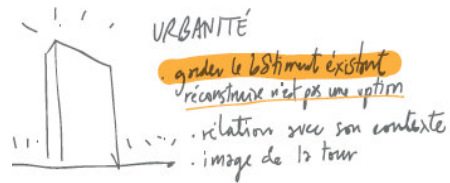 URBANITÉ
. garder le bâtiment éxistant
réconstruire n'est pas une option
. rélation avec son contexte
. image de la tour